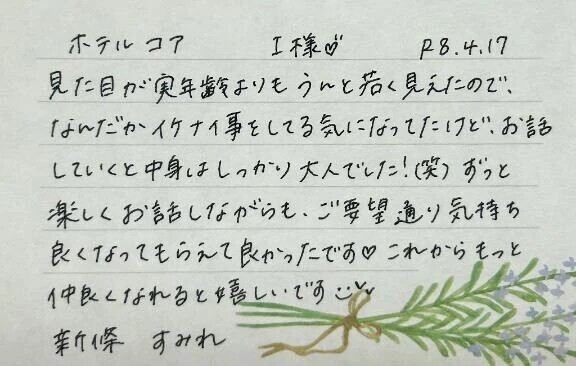 ホテル コア I様♡ R8.4.17
見た目が実年齢よりも うんと若く見えたので、
なんだかイケナイ事をしてる気になってたけど、お話
していくと中身はしっかり大人でした!(笑) ずっと
楽しくお話しながらも、ご要望通り気持ち
良くなってもらえて良かったです♡ これからもっと
仲良くなれると嬉しいです
新條 すみれ